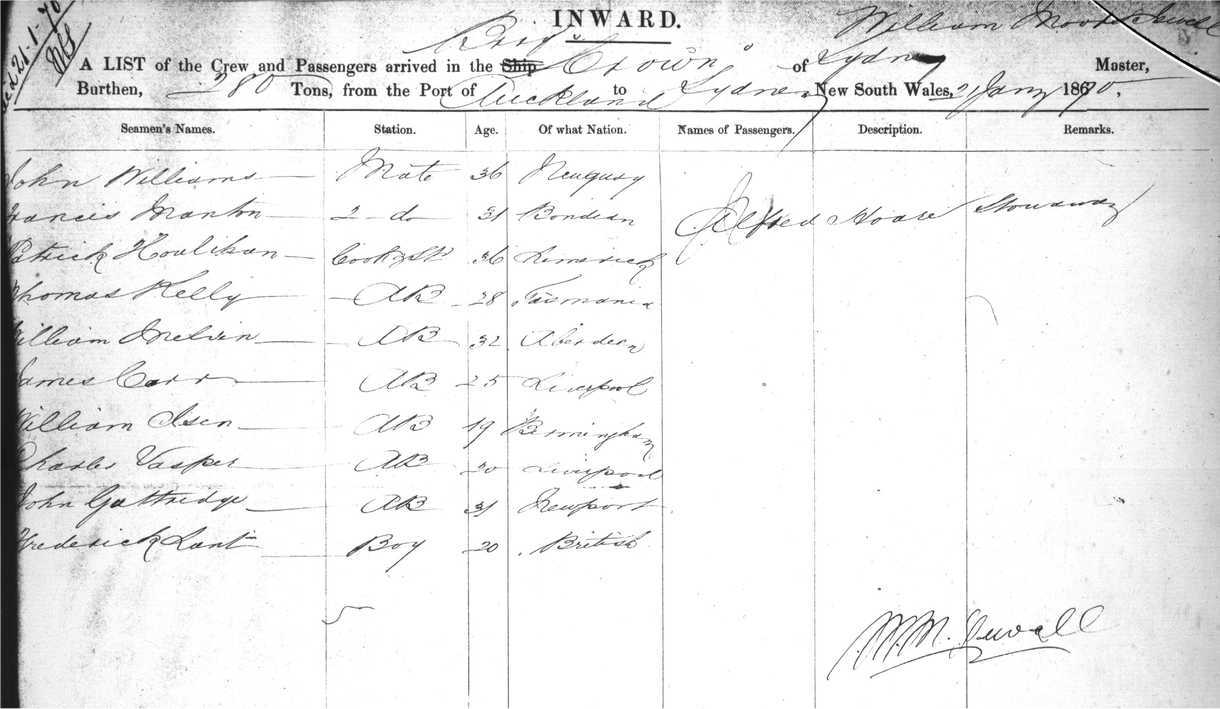 INWARD.
William Moore Jewell
21-1-70
A LIST of the Crew and Passengers arrived in the Ship Brig "Crown" of Sydney Master,
Burthen, 280 Tons, from the Port of Auckland to Sydney New South Wales, 21 Jany 1870,
Seamen's Names. Station. Age. Of what Nation. Names of Passengers. Description. Remarks.
John Williams Mate 36 Newquay
Francis Manton 2 do 31 Alfred Hoare Stowaway
Patrick Houlihan Cook & St 36 Limerick
Thomas Kelly AB 28 Tasmania
William Melvin AB 32 Aberdeen
James Carr AB 25 Liverpool
William Isen AB 19 Birmingham
Charles Vasper AB 20 Liverpool
John Guttridge AB 31 Newport
Frederick Lant Boy 20 British
W. M. Jewell